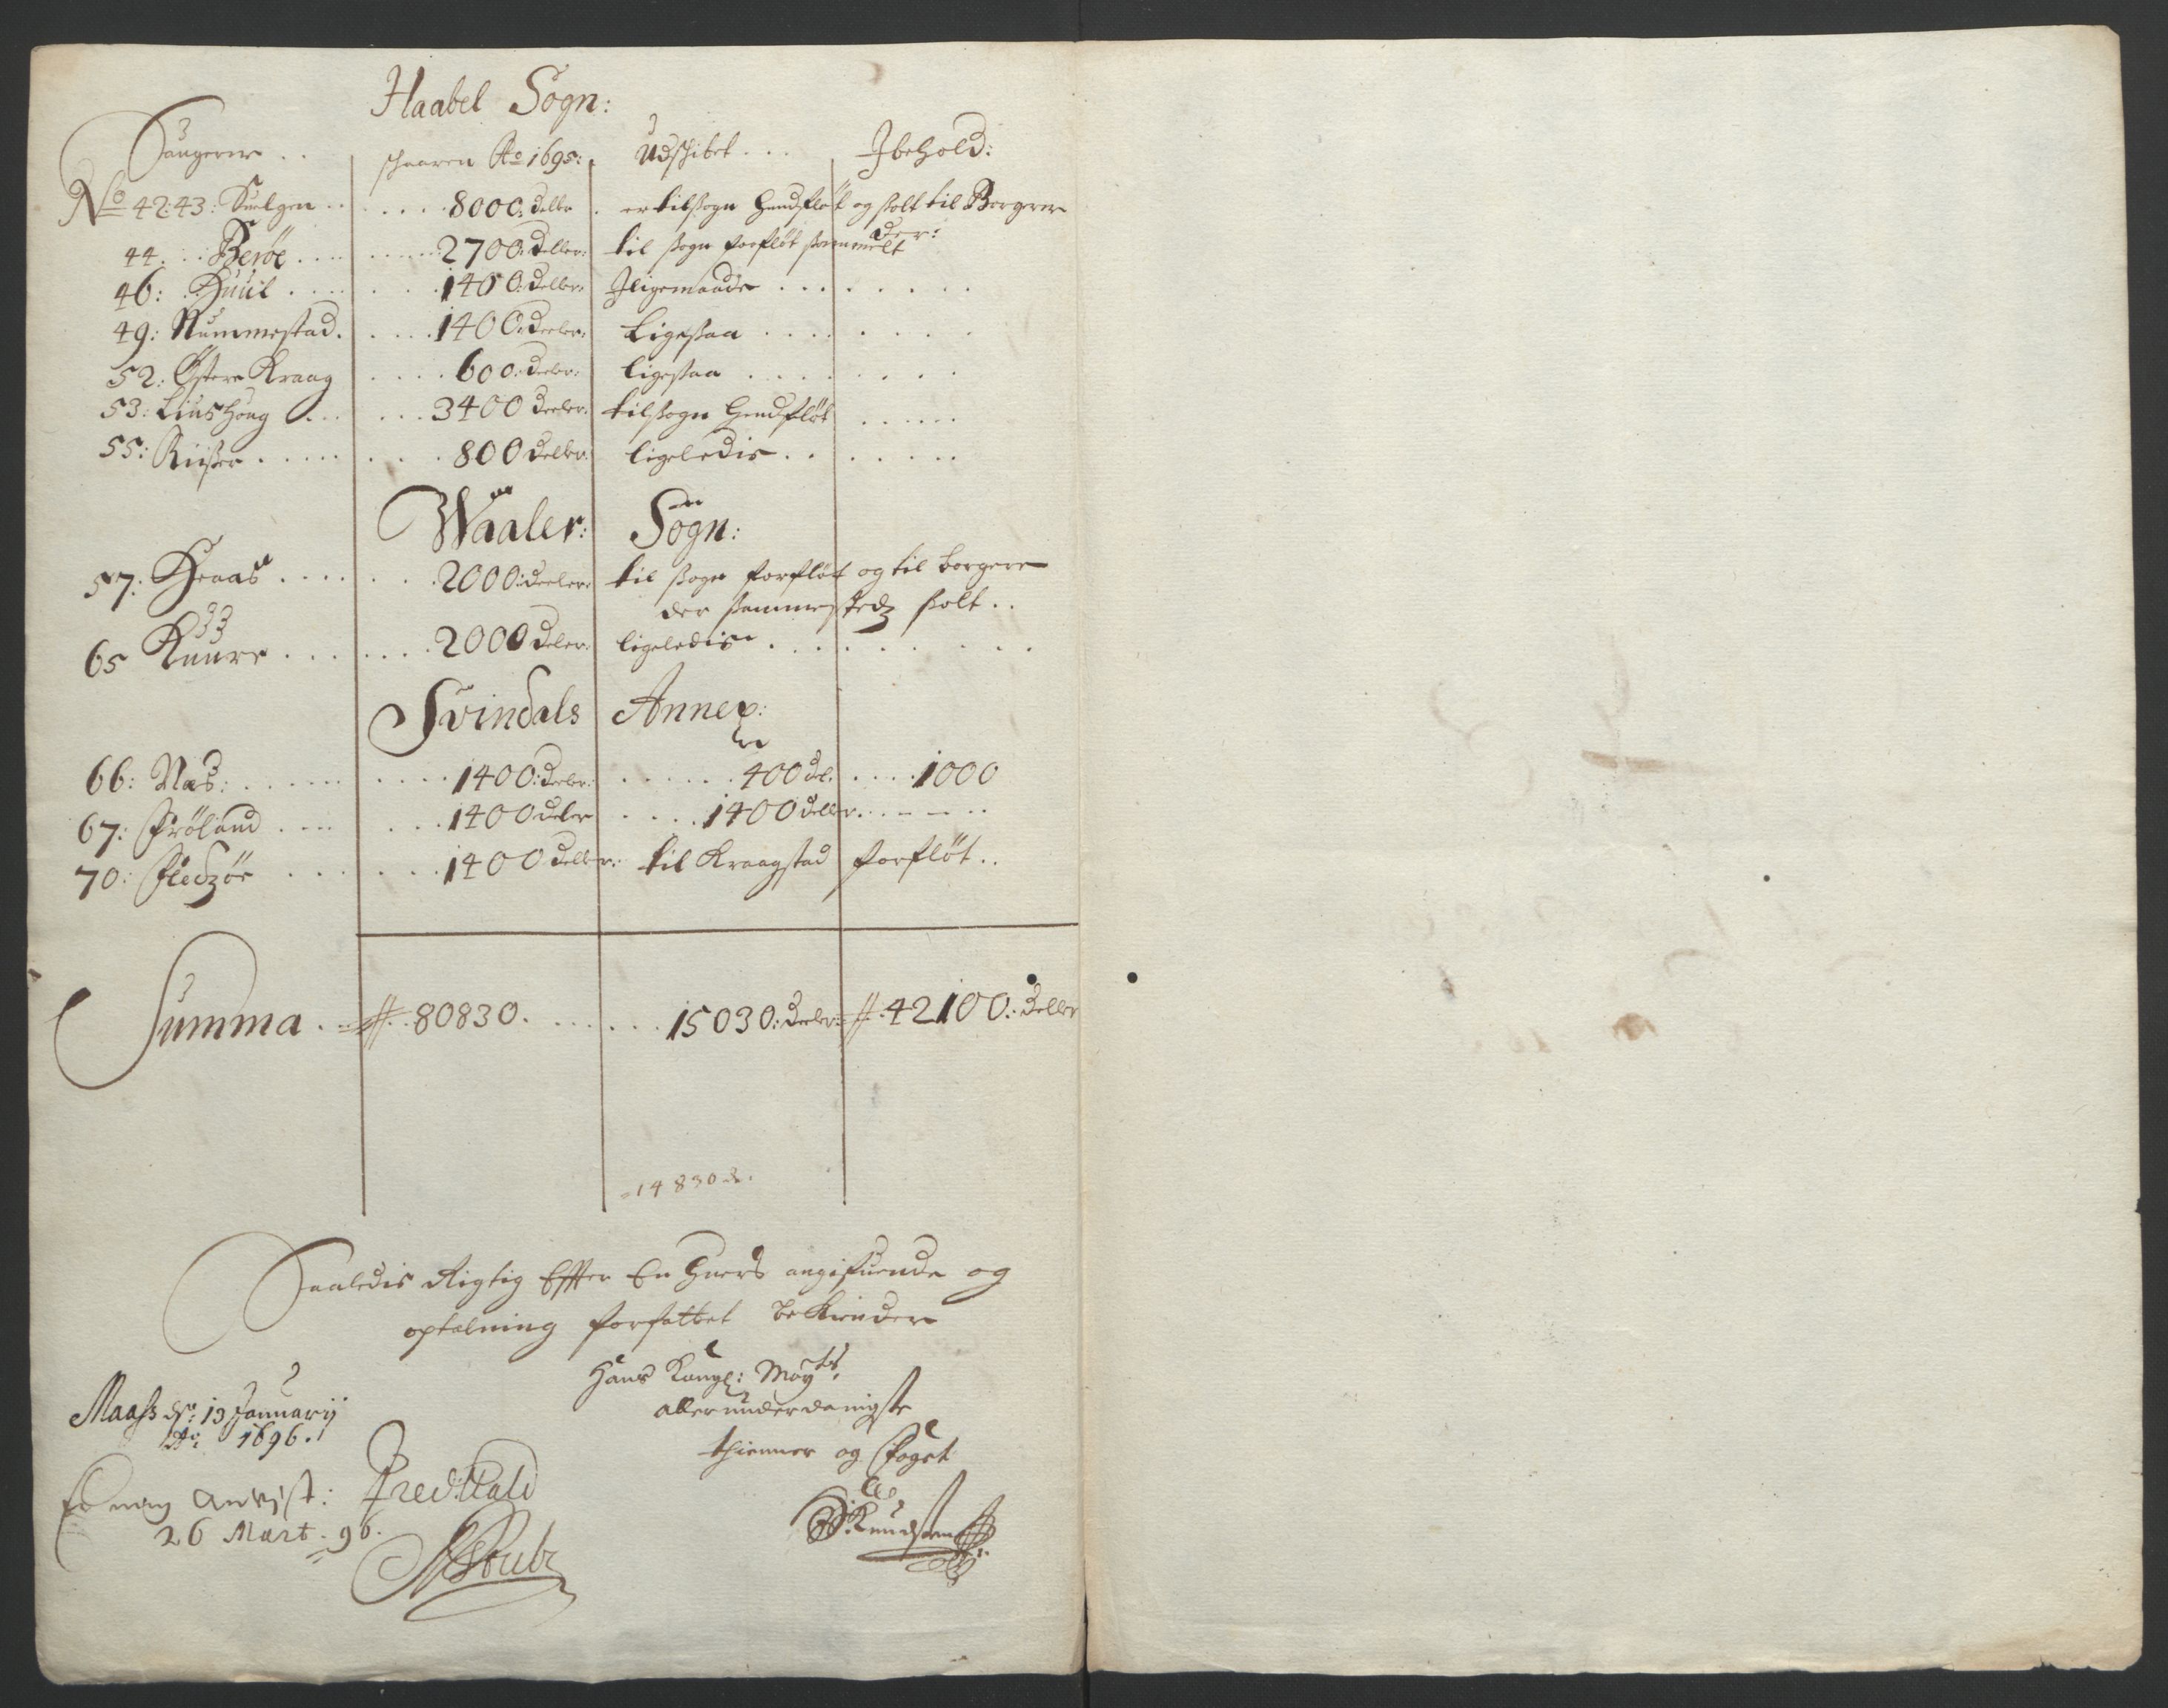 Haabel Sogn:
Saugerne . . schaaren Ao 1695: Udschibet . . . Ibehold:
No 42:43: Suelgen . . . . . . 8000: deller . er til Sogn hendfløt og solt til Borgerne
der:
44. . . Berøe . . . . 2700: deller: til Sogn forfløt sammelt
46: Huul . . . . 1400: deller: Jligemaade . . . . . .
49: Rummestad. . . . . 1400: deeler: Ligesaa . . . . . . .
52: Østere Kraag . . . . 600: deeler: ligesaa . . . . . . . .
53: Liushoug . . . . . . 3400 deeler: til Sogn hendfløt . . . . .
55: Riiser . . . . . . . 800 deller. ligeledis . . . . . . .
Waaler: Sogn:
57: Henas . . . . . . . 2000: deeler: til Sogn forfløt og til borgere
der sammestedz solt . .
65 Kuure . . . . . . . 2000 deler. ligeledis . . . . . . . .
Svindals Annex:
66: Næs: . . . . . . . . 1400: deeler: . . . . . . 400 del. . . . . 1000
67: Frøland . . . . . . 1400 deler . . . . 1400 deller. . . . .
70: Fledzøe . . . . . . 1400 deller: til Kraagstad forfløt . .
Summa . . 80830. . . . . . . 15030: deeler: 42100: deller
14830 d.
Saaledis Rigtig Effter En huers angifuende og
optelning forfattet bekiender
Hans Kongl: Mayts.
allerunderdanigste
thienner og Foget
Maass ds: 13 Januarij
Ao: 1696.
26 Mart. 96.
Knudsen